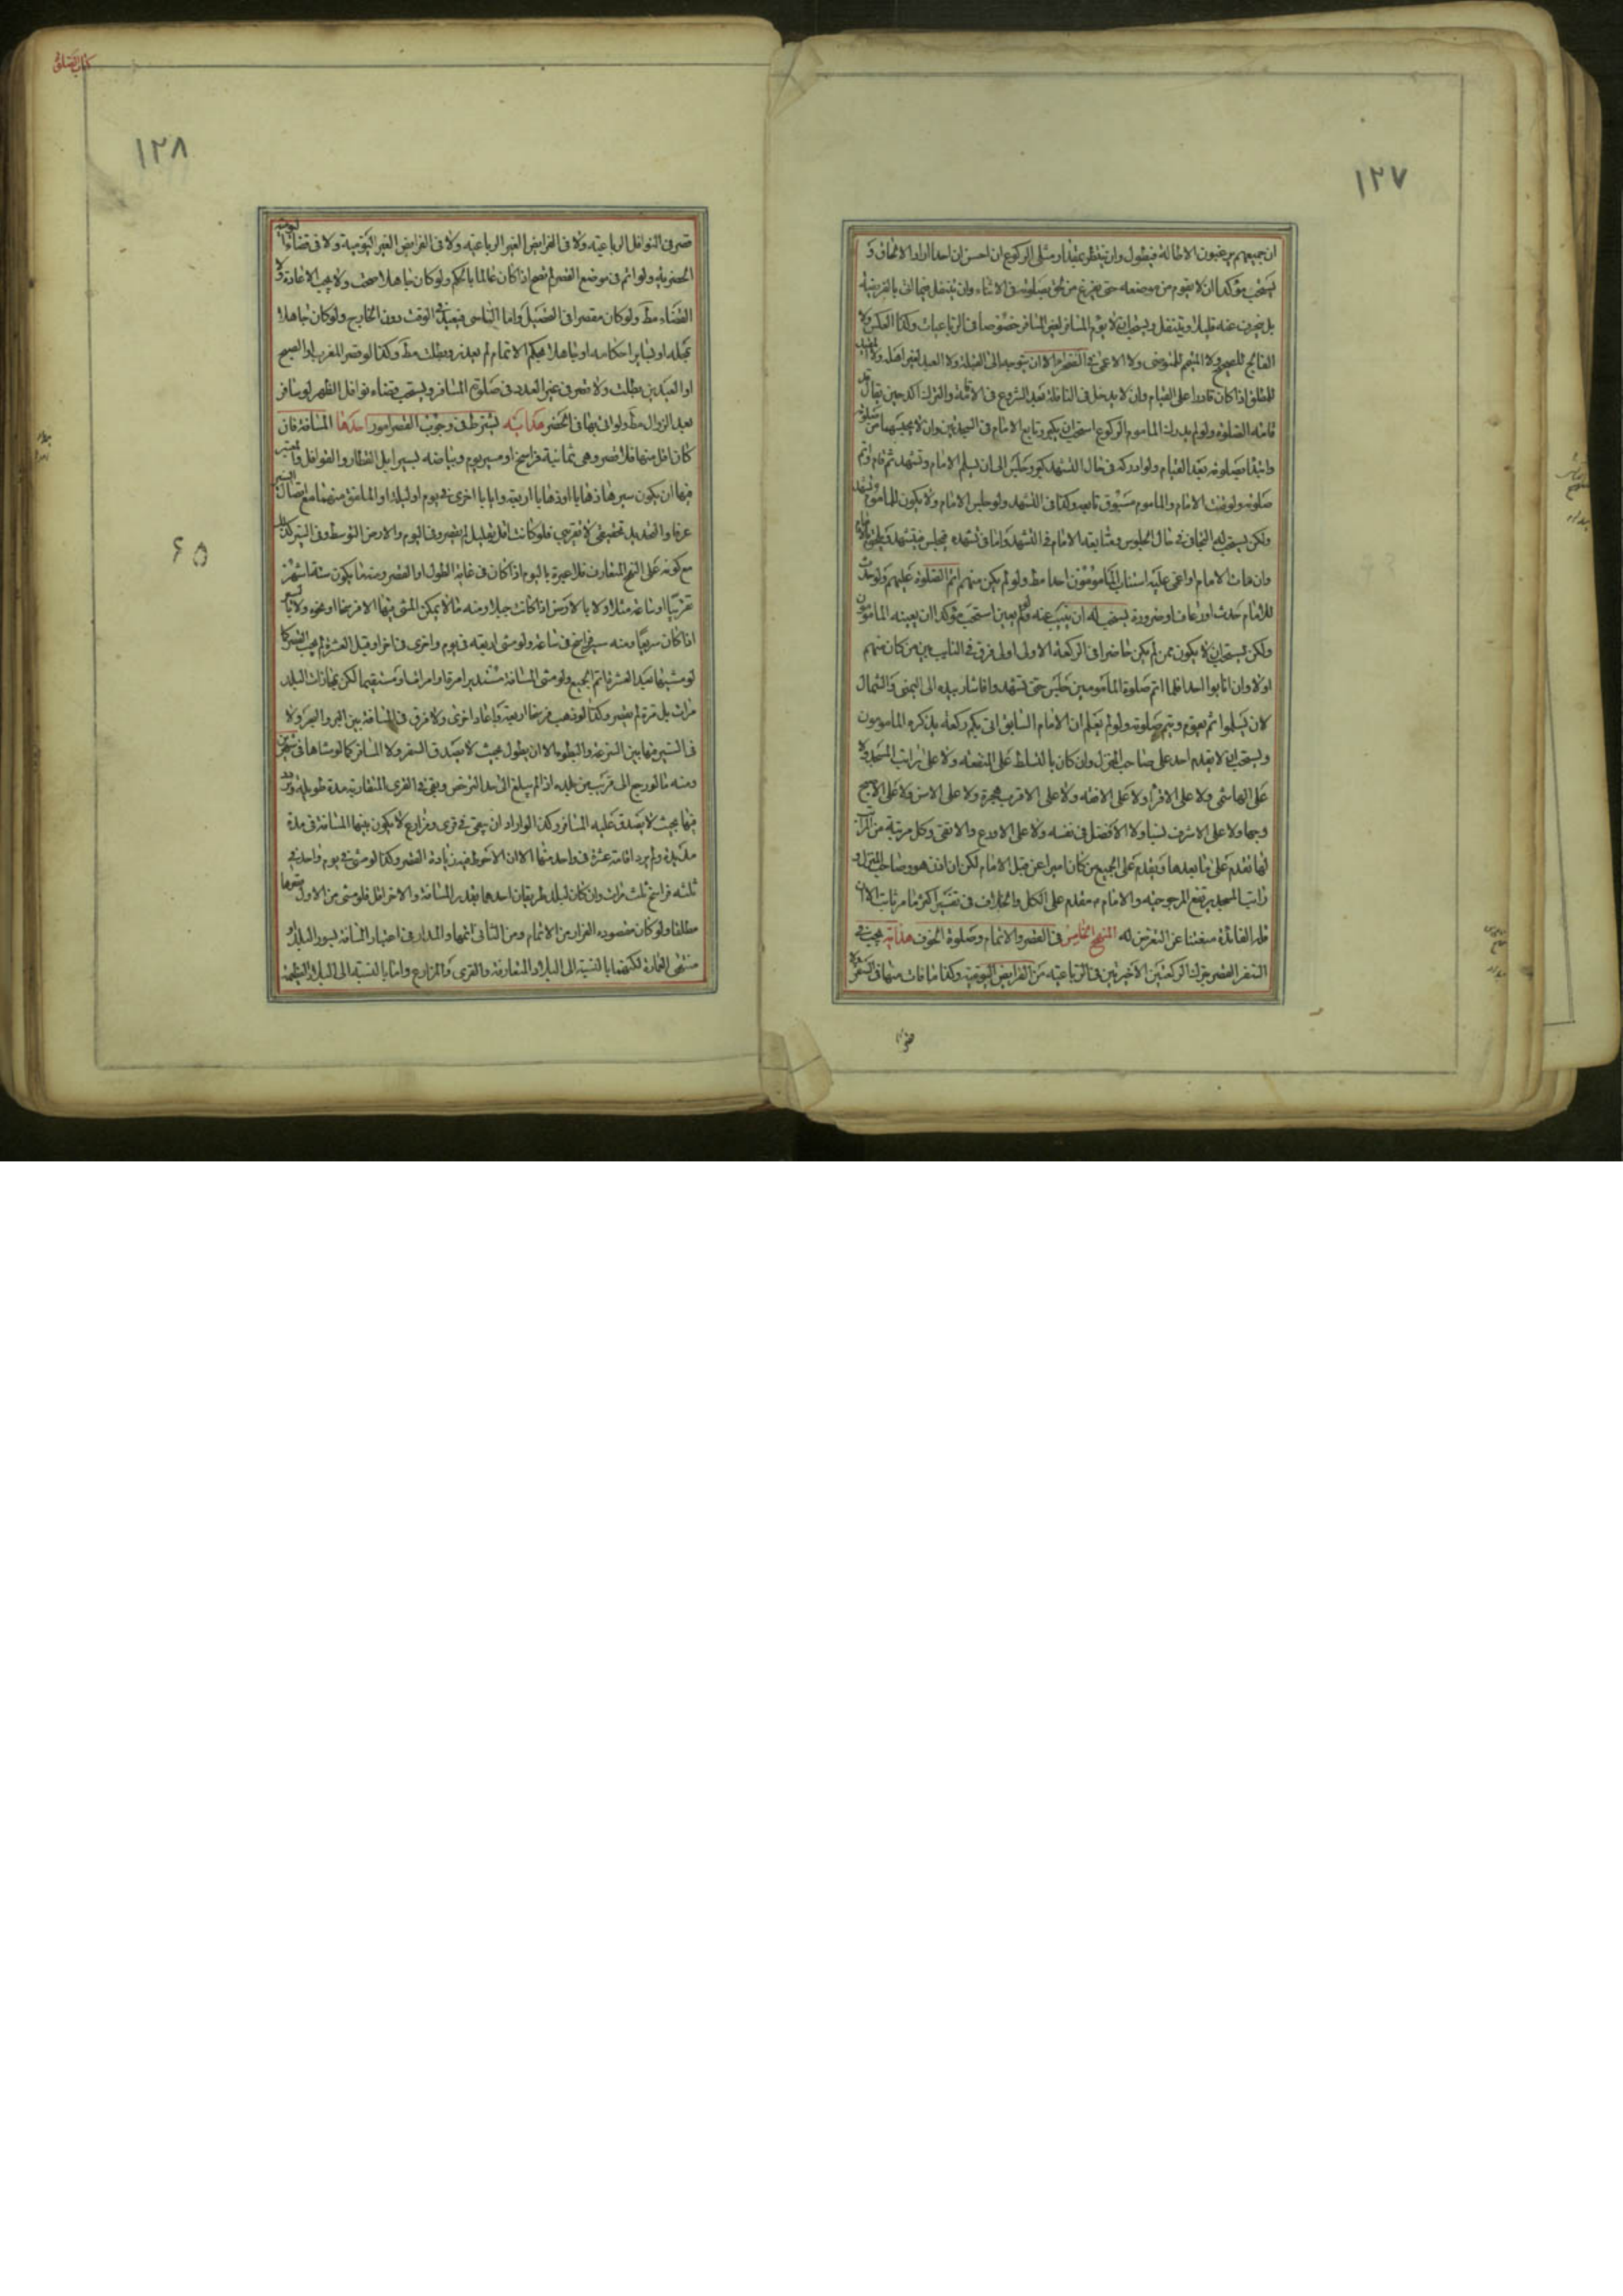 ١٢٧
ان جميعهم يرغبون الاطالة فيطول وان ينتظر بمقدار مثلى الركوع ان احس ان احدا اراد الالحاق و
يستحب مؤكدا ان لا يقوم من موضعه حتى يفرغ من صلوته في الاثناء وان لا يتنفل
بل ينحرف عنه قليلا ويتنفل ويستحب ان لا يؤم المسافر لغير المسافر خصوصا في الرباعيات وكذا العكس ولا
الفالج للصحيح ولا المتيمم للمتوضى ولا الاعمى في الصحراء الا ان يتوجه الى القبلة ولا العبد لغير اهله ولا
للمطلق اذا كان قادرا على القيام وان لا يدخل في النافلة بعد الشروع في الاقامة والترك اكد حين يقال قد
قامت الصلوة ولو لم يدرك الماموم الركوع استحب ان يكبر ويتابع الامام في السجدتين وان لا يحسبهما من صلوته
وابتدا بصلوته بعد القيام ولو ادركه في حال التشهد كبر وجلس الى ان يسلم الامام وتشهد ثم قام واتم
صلوته ولو قنت الامام والماموم مسبوق تابعه وكذا في التشهد ولو جلس الامام ولا يكون للماموم تشهد
ولكن يستحب له التجافى في حال الجلوس ومتابعة الامام في التشهد واما في تشهده فيجلس فيتشهد ويلحق
وان مات الامام او اغمى عليه استناب المامومون احدا مط ولو لم يكن منهم اتم الصلوة عليهم ولو حدث
للامام حدث او رعاف او ضرورة يستحب له ان ينيب عنه ولو لم يعين استحب مؤكدا ان يعينه المامومون
ولكن يستحب ان لا يكون ممن لم يكن حاضرا في الركعة الاولى اولى فرق في النايب بين من كان منهم
اولا وان انابوا احدا فلما اتم صلوة المامومين جلس حتى تشهد واشار بيده الى اليمنى والشمال
لان يسلموا ثم يقوم ويتم صلوته ولو لم يعلم ان الامام السابق اتى بكم ركعة يذكره المامومون
ويستحب ان لا يقدم احد على صاحب المنزل وان كان بالتسلط على المنفعة ولا على راتب المسجد ولا
على الهاشمى ولا على الاقرأ ولا على الافقه ولا على الاقرب هجرة ولا على الاسن ولا على الاصبح
وجها ولا على الاشرف نسبا ولا الافضل في نفسه ولا على الاورع والاتقى وكل مرتبة من المراتب
لها تقدم على ما بعدها ويتقدم على الجميع من كان اميرا من قبل الامام لكن ان اذن هو وصاحب المنزل و
راتب المسجد يرتفع المرجوحية والامام م مقدم على الكل والخلاف في تفسير اكثر ما مر ثابت الا ان
قلة الفائدة منعتنا عن التعرض له المنهج الخامس في القصر والاتمام وصلوة الخوف هداية يجب في
السفر القصر بترك الركعتين الاخيرتين في الرباعية من الفرايض اليومية وكذا ما فات منها في السفر ولا
كتاب الصلوة
١٢٨
قصر في النوافل الرباعية ولا في الفرايض الغير الرباعية ولا في الفرايض الغير اليومية ولا في قضاء اليومية
الحضرية ولو اتم في موضع القصر لم تصح اذا كان عالما بالحكم ولو كان جاهلا صحت ولا يجب الاعادة ولا
القضاء مط ولو كان مقصرا في التحصيل واما الناسى فيعيد في الوقت دون الخارج ولو كان جاهلا
بمحله او بساير احكامه او جاهلا بحكم الاتمام لم يعذر وبطلت مط وكذا لو قصر المغرب او الصبح
او العيدين بطلت ولا قصر في غير العدد في صلوة المسافر ويستحب قضاء نوافل الظهر لو سافر
بعد الزوال مط ولو اتى بها في الحضر هداية يشترط في وجوب القصر امور احدها المسافة فان
كان اقل منها فلا قصر وهى ثمانية فراسخ او مسير يوم وبياضه بسير ابل القطار والقوافل والمعتبر
فيها ان يكون سيرها ذهابا او ذهابا اربعة وايابا اخرى في يوم او ليلة او الملفق منهما مع اتصال السير
عرفا والتحديد تحقيقى لا تقريبى فلو كانت اقل بقليل لم يقصر وفى اليوم والارض التوسط وفى السير كذلك
مع كونه على النهج المتعارف فلا عبرة باليوم اذا كان في غاية الطول او القصر ومنه ما يكون ستة اشهر
تقريبا او ساعة مثلا ولا بالارض اذا كانت جبلا ومنه ما لا يمكن المشى فيها الا فرسخا او نحوه ولا بالسير
اذا كان سريعا ومنه سير فراسخ في ساعة ولو مشى اربعة في يوم واخرى في اخر او قبل العشرة لم يجب القصر كما
لو مشيها بعد العشرة اتم الجميع ولو مشى المسافة مستديرا مرة او مرارا او مستقيما لكن بمحاذات البلد
مرات بل مرة لم يقصر وكذا لو ذهب فرسخا اربعة واعاد اخرى ولا فرق في المسافة بين البر والبحر ولا
في السير فيها بين السرعة والبطوء الا ان يطول بحيث لا يصدق السفر ولا المسافر كما لو مشاها في شهرين
ومنه ما لو رجع الى قريب من بلده اذا لم يبلغ الى حد الترخص وبقى في القرى المتقاربة مدة طويلة وتردد
فيها بحيث لا يصدق عليه المسافر وكذا لو اراد ان يبقى في قرى ومزارع لا يكون بينها المسافة في مدة
مديدة ولم يرد اقامة عشرة في واحد منها الا ان الاحوط فيه زيادة القصر وكذا لو مشى في يوم واحد في
ثلثه فراسخ ثلث مرات وان كان لبلد طريقان احدهما بقدر المسافة والاخر اقل فلو مشى من الاول قصرها
مطلقا ولو كان مقصوده الفرار من الاتمام ومن الثانى اتمها والمدار في اعتبار المسافة لسور البلد او
منتهى العمارة لكنهما بالنسبة الى البلاد المتعارفة والقرى والمزارع واما بالنسبة الى البلاد العظيمة
٦٥